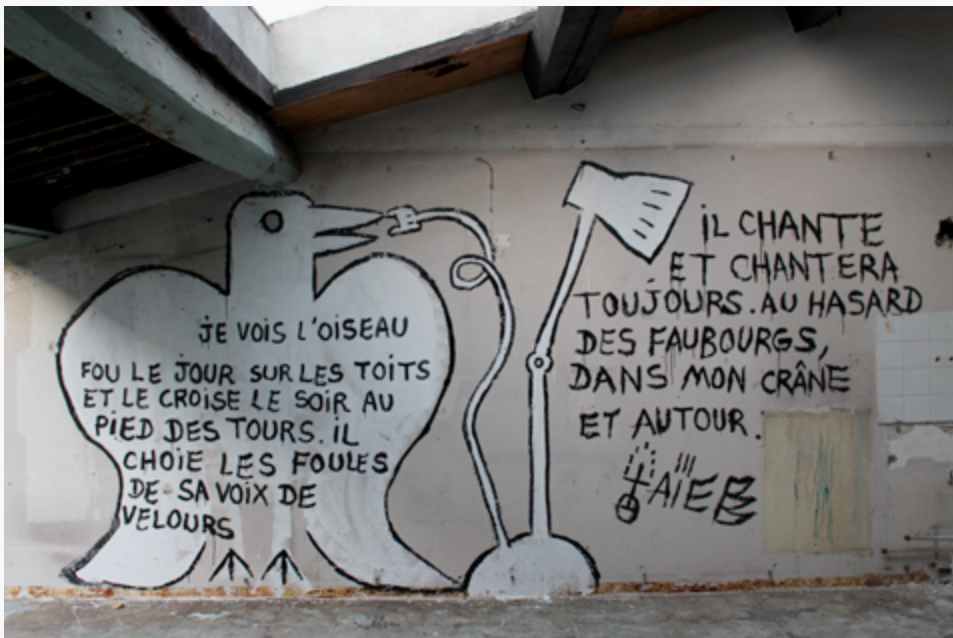 JE VOIS L'OISEAU
FOU LE JOUR SUR LES TOITS
ET LE CROISE LE SOIR AU
PIED DES TOURS. IL
CHOIE LES FOULES
DE SA VOIX DE
VELOURS
IL CHANTE
ET CHANTERA
TOUJOURS. AU HASARD
DES FAUBOURGS,
DANS MON CRÂNE
ET AUTOUR.